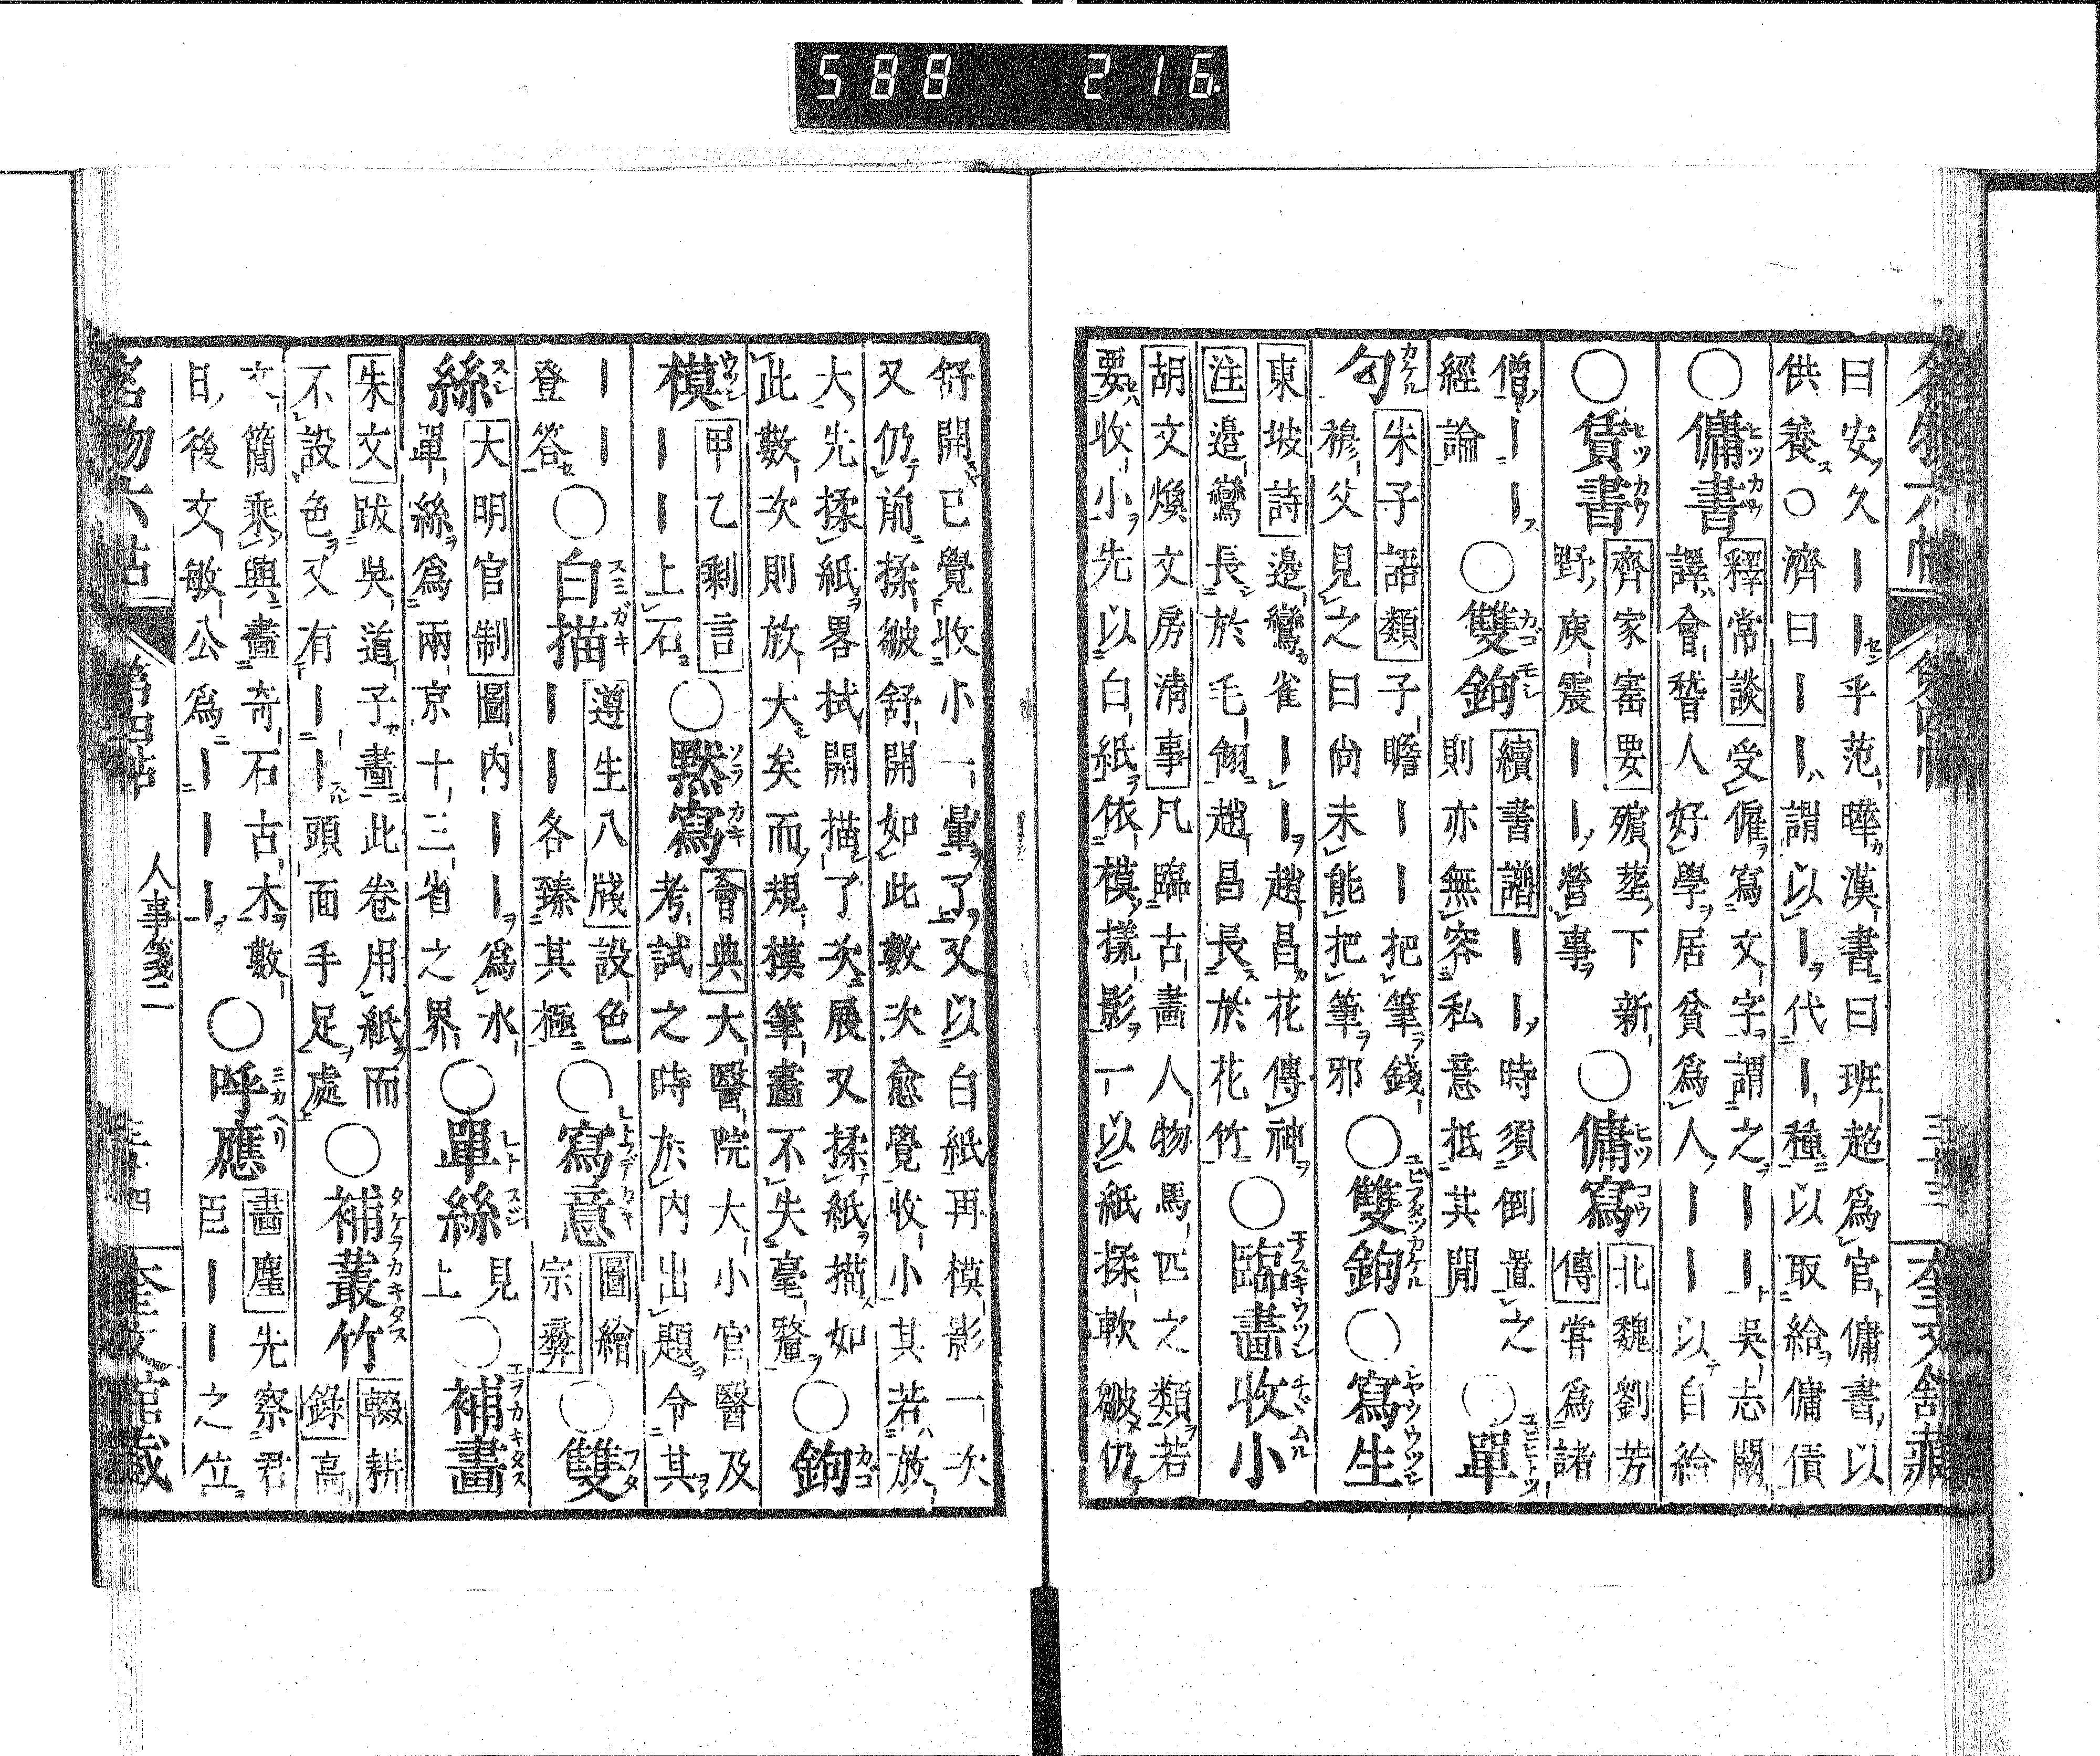 588 216
曰安久丨丨乎范曄漢書曰班超爲官傭書以
供養○濟曰丨丨謂以丨代丨種以取給傭債
○傭書 釋常談 受僱寫文字謂之丨丨吳志闞
譯會稽人好學居貧爲人丨丨以自給
○賃書 齊家寚要 殯塟下新
野庾震丨丨營事
○傭寫 北魏劉芳
傳 嘗爲諸
僧丨丨
經論
○雙鉤 續書譜 丨丨時須倒置之
則亦無容私意抵其閒
○單
勾 朱子語類 子瞻丨丨把筆錢
穆父見之曰尙未能把筆邪
○雙鉤○寫生
東坡詩 邉鸞雀丨丨趙昌花傳神
注 邉鸞長於毛翎趙昌長於花竹
○臨畵收小
胡文煥文房淸事 凡臨古畵人物馬匹之類若
要收小先以白紙依模樣影一以紙揉軟皺仍
舒開已覺收小一暈了又以白紙再模影一次
又仍前揉皺舒開如此數次愈覺收小其若放
大先揉紙畧拭開描了次展又揉紙描如
此數次則放大矣而規模筆畫不失毫釐
○鉤
模 甲乙剩言
丨丨上石
○黙寫 會典 大醫院大小官醫及
考試之時於内出題令其
丨丨
登答
○白描 遵生八牋 設色
丨丨各臻其極
○寫意 圖繪
宗彞
○雙
絲 大明官制 圖内丨丨爲水
單絲爲兩京十三省之界
○單絲 見
上
○補畵
朱文 跋吳道子畵此卷用紙而
不設色又有丨丨頭面手足處
○補叢竹 輟耕
錄 高
文簡乘興畵奇石古木數
日後文敏公爲丨丨丨
○呼應 畵塵 先察君
臣丨丨之位
名物六帖 第四帖 人事箋二 三十四 奎文館藏